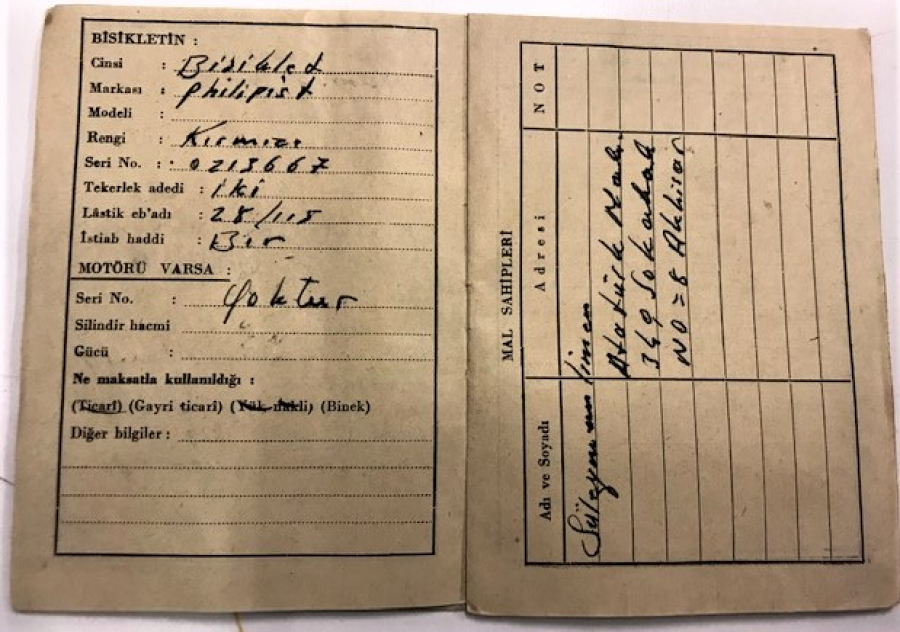 BİSİKLETİN :
Cinsi : Bisiklet
Markası : Philipist
Modeli :
Rengi : Kırmızı
Seri No. : 0213667
Tekerlek adedi : iki
Lâstik eb'adı : 28/115
İstiab haddi : Bir
MOTÖRÜ VARSA :
Seri No. : Yoktur
Silindir hacmi
Gücü :
Ne maksatla kullanıldığı :
(Ticarî) (Gayri ticarî) (Yük nakli) (Binek)
Diğer bilgiler :
MAL SAHİPLERİ
Adı ve Soyadı Adresi NOT
Süleyman
Atatürk Mah.
No = 8 Akhisar